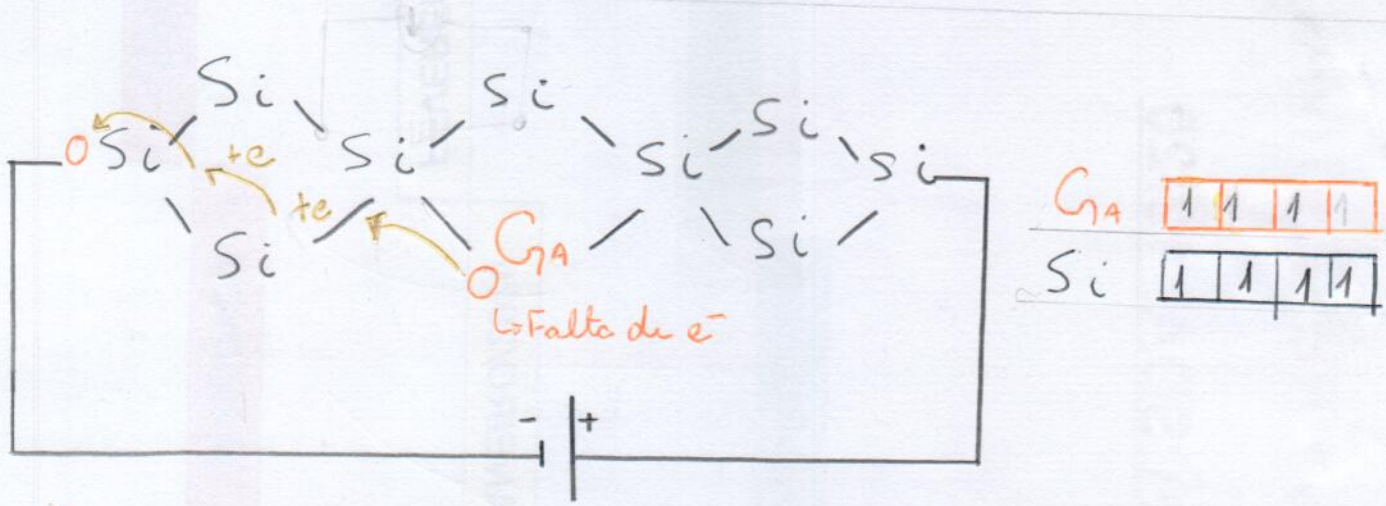 Si Si Si
O Si +e Si Si Si
+e
Si GA Si
O
↳ Falta de e⁻
- +
GA 1 1 1 1
Si 1 1 1 1